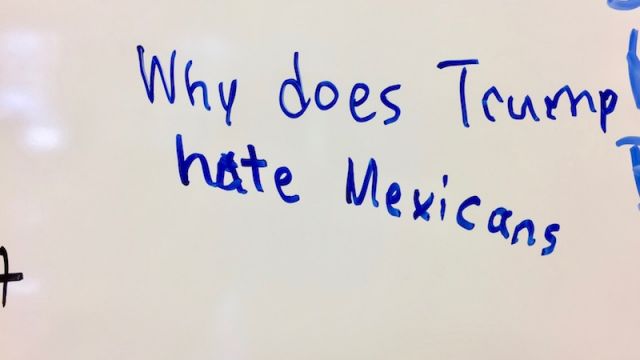 Why does Trump
hate Mexicans